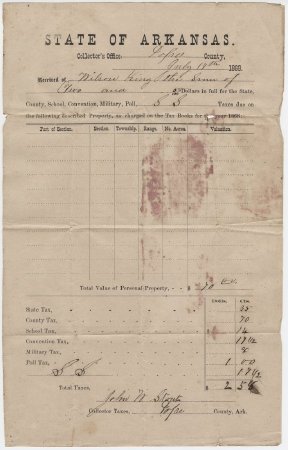 STATE OF ARKANSAS.
Collector's Office, Pope County,
July 17th 1869.
Received of Wilson King the sum of
Two and Dollars in full for the State,
County, School, Convention, Military, Poll, S S Taxes due on
the following described Property, as charged on the Tax Books for the year 1868:
Part of Section. Section. Township. Range. No. Acres. Valuation.
Total Value of Personal Property, $ 70 00.
Dolls. Cts.
State Tax, 35
County Tax, 70
School Tax, 14
Convention Tax, 17½
Military Tax,
Poll Tax, 1 00
S S 17½
Total Taxes, $ 2
John
Collector Taxes, Pope County, Ark.